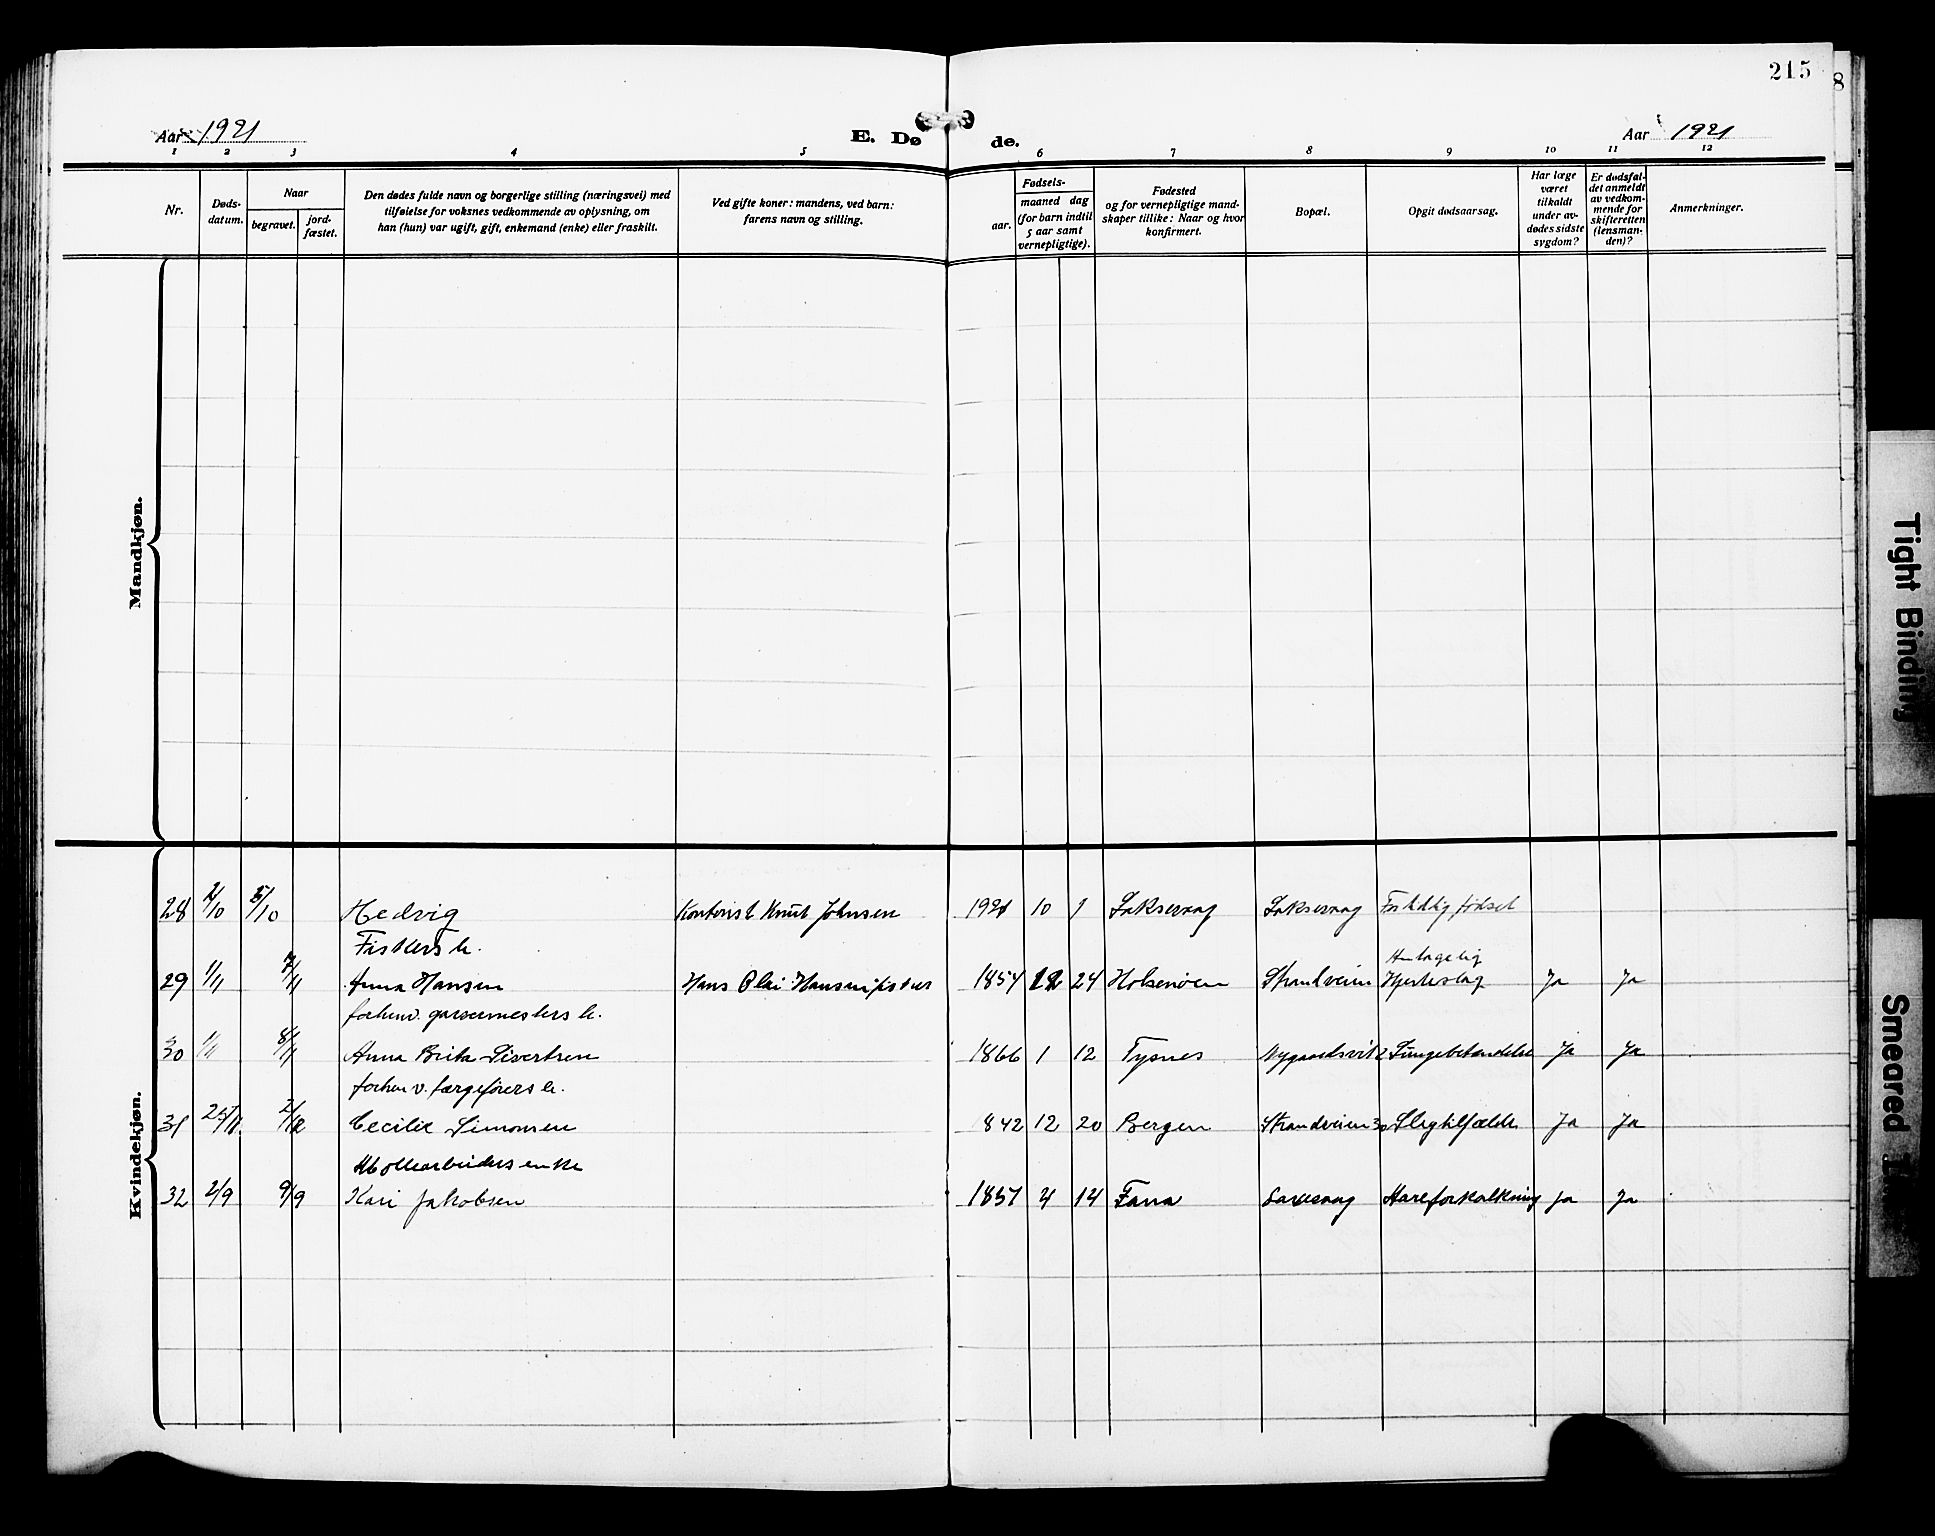 215
8
Aar 1921
E. Dø
de.
Aar 1921
1 2 3 4 5 6 7 8 9 10 11 12
Nr.
Døds-
datum.
Naar
begravet.
jord-
fæstet.
Den dødes fulde navn og borgerlige stilling (næringsvei) med
tilføielse for voksnes vedkommende av oplysning, om
han (hun) var ugift, gift, enkemand (enke) eller fraskilt.
Ved gifte koner: mandens, ved barn:
farens navn og stilling.
Fødsels-
aar.
maaned dag
(for barn indtil
5 aar samt
vernepligtige).
Fødested
og for vernepligtige mand-
skaper tillike: Naar og hvor
konfirmert.
Bopæl.
Opgit dødsaarsag.
Har læge
været
tilkaldt
under av-
dødes sidste
sygdom?
Er dødsfal-
det anmeldt
av vedkom-
mende for
skifteretten
(lensman-
den)?
Anmerkninger.
Mandkjøn.
Kvindekjøn.
28 2/10 5/10 Hedvig Kontorist Knut Johnsen 1921 10 1 Laksevaag Laksevaag fødsel
Fiskers h. Antagelig
29 1/11 7/11 Anna Hansen Hans Olai Hansen fisker 1854 12 24 Holsenøen Strandveien Hjerteslag Ja Ja
forhenv. garvermesters h.
30 1/11 8/11 Anna Brita Sivertsen 1866 1 12 Tysnes Nygaardsvik 2 Lungebetændelse Ja Ja
forhenv. færgeførers h.
31 25/11 2/12 Cecilie Simonsen 842 12 20 Bergen Strandveien 30 Slagtilfælde Ja Ja
Møllearbeiders enke
32 2/9 9/9 Kari Jakobsen 1857 4 14 Fana Laksevaag Aareforkalkning Ja Ja
Tight Binding
Smeared